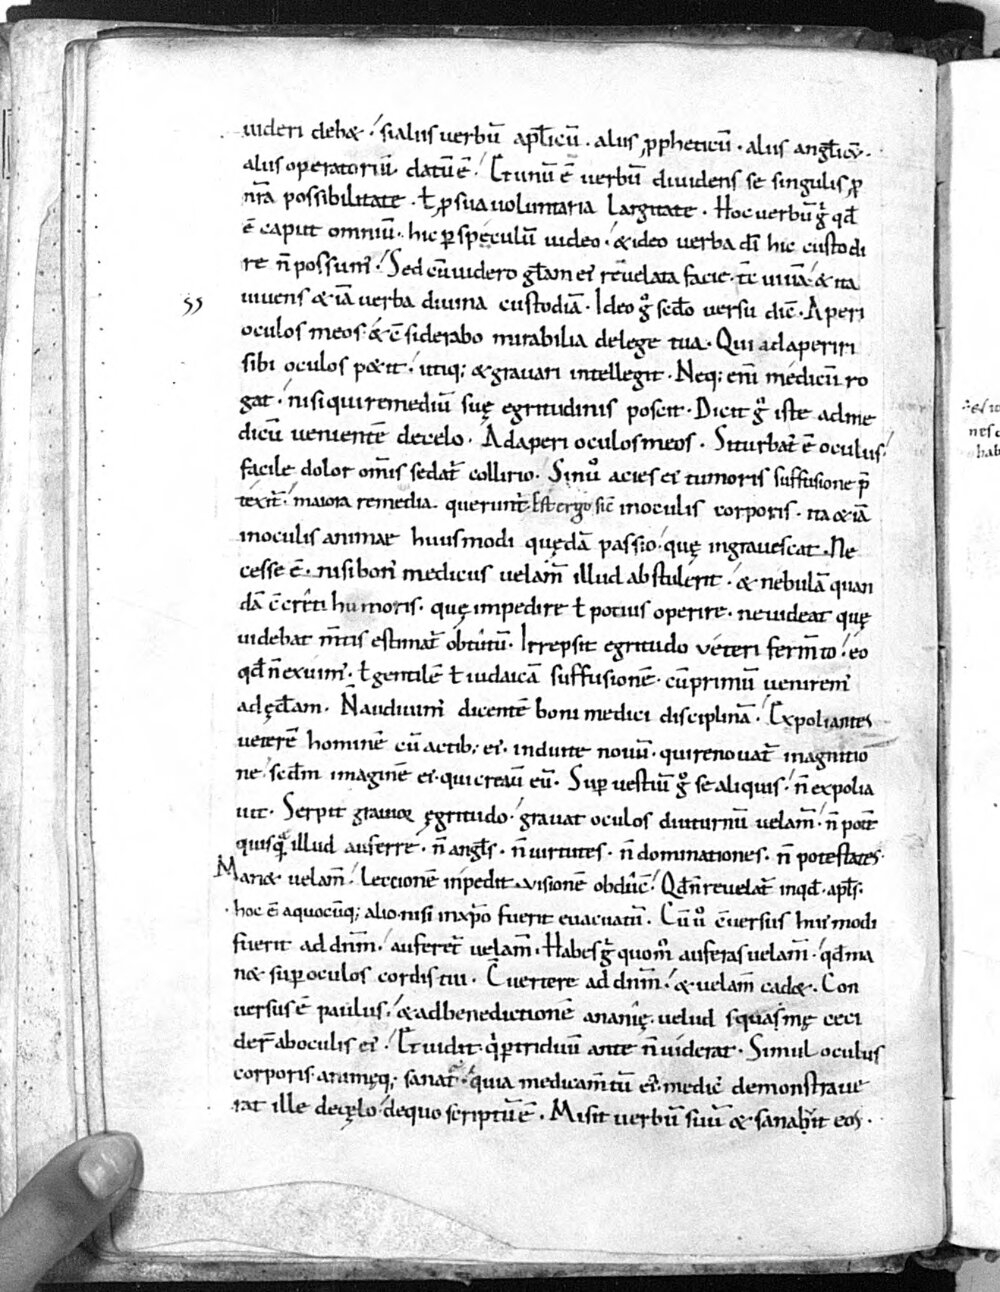 uideri debet. si alius uerbū apl̄icū. alius ꝓpheticū. alius angl̄icū.
alius operatoriū datū ē. Et unū ē uerbū diuidens se singulis ꝓ
nr̄a possibilitate. ł ꝓ sua uoluntaria largitate. Hoc uerbū gͥ qđ
ē caput omniū. hic ꝑ speculū uideo. & ideo uerba dī hic custodi
re n̄ possum̄. Sed cū uidero gl̄am ei reuelata facie. tc̄ uiuā. & ita
ss
uiuens & iā uerba diuina custodiā. Ideo gͦ scđo uersu dic̄. Aperi
oculos meos. & c̄siderabo mirabilia de lege tua. Qui adaperiri
sibi oculos petit. utiq; & grauari intellegit. Neq; enī medicū ro
gat. nisi qui remediū suę egritudinis poscit. Dicit gͦ iste ad me
dicū uenientē de celo. Adaperi oculos meos. Si turbat̄ ē oculus.
facile dolor om̄is sedat̄ collirio. Si uͦ acies ei tumoris suffusione p̄
texit̄. maiora remedia querunt̄. Est ergo sic̄ in oculis corporis. ita & iā
in oculis animae huiusmodi quędā passio. quę ingrauescat. Ne
cesse ē. nisi bon' medicus uelam̄ illud abstulerit. & nebulā quan
dā c̄creti humoris. quę impedire ł potius operire. ne uideat quę
uidebat m̄tis estimat̄ obtutū. Irrepsit egritudo ueteri ferm̄to. eo
qđ n̄ exuim̄. ł gentilē ł iudaicā suffusionē. cū primū uenirem̄
ad ęcl̄am. N̄ audiuim̄ dicentē boni medici disciplinā. Expoliantes
ueterē hominē cū actib; ei. induite nouū. qui renouat̄ in agnitio
ne. scđm imaginē ei. qui creau̅ eū. Suꝑ uestiu̅ gͦ se aliquis. n̄ expolia
uit. Serpit grauior ęgritudo. grauat oculos diuturnū uelam̄. n̄ potē
quisqͣ illud auferre. n̄ angl̄s. n̄ uirtutes. n̄ dominationes. n̄ potestates.
Manet uelam̄. leccionē inpedit. uisionē obduc̄. Qđ n̄ reuelat̄ inqđ. apl̄s.
hoc ē a quocūq; alio. nisi in xp̄o fuerit euacuatū. Cū uͦ c̄uersus hui'modi
fuerit ad dn̄m. auferet̄ uelam̄. Habes gͥ quom̊ auferas uelam̄. qđ ma
net suꝑ oculos cordis tui. C̄uertere ad dn̄m. & uelam̄ cadet. Con
uersus ē paulus. & ad benedictionē ananię. uelud squasmę ceci
der̄ ab oculis ei. Et uidit. qͥ ꝑ triduū ante n̄ uiderat. Simul oculus
corporis. animęq; sanat̄. quia medicam̄tū ei medic' demonstraue
rat ille de cęlo. de quo scriptū ē. Misit uerbū suū & sanabit eos.